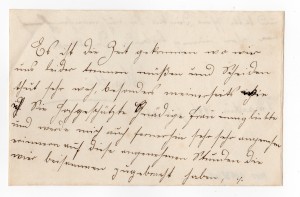 Es ist die Zeit gekommen wo wir
uns leider trennen müßen und Scheiden
theit sehr weh, besonders meinerseits
Sie hochgeschätzte Gnädige Frau
und werde mich auch fernerhin sehr sehr angenehm
erinnern auf diese angenehmen Stunden die
wir beisammen zugebracht haben,